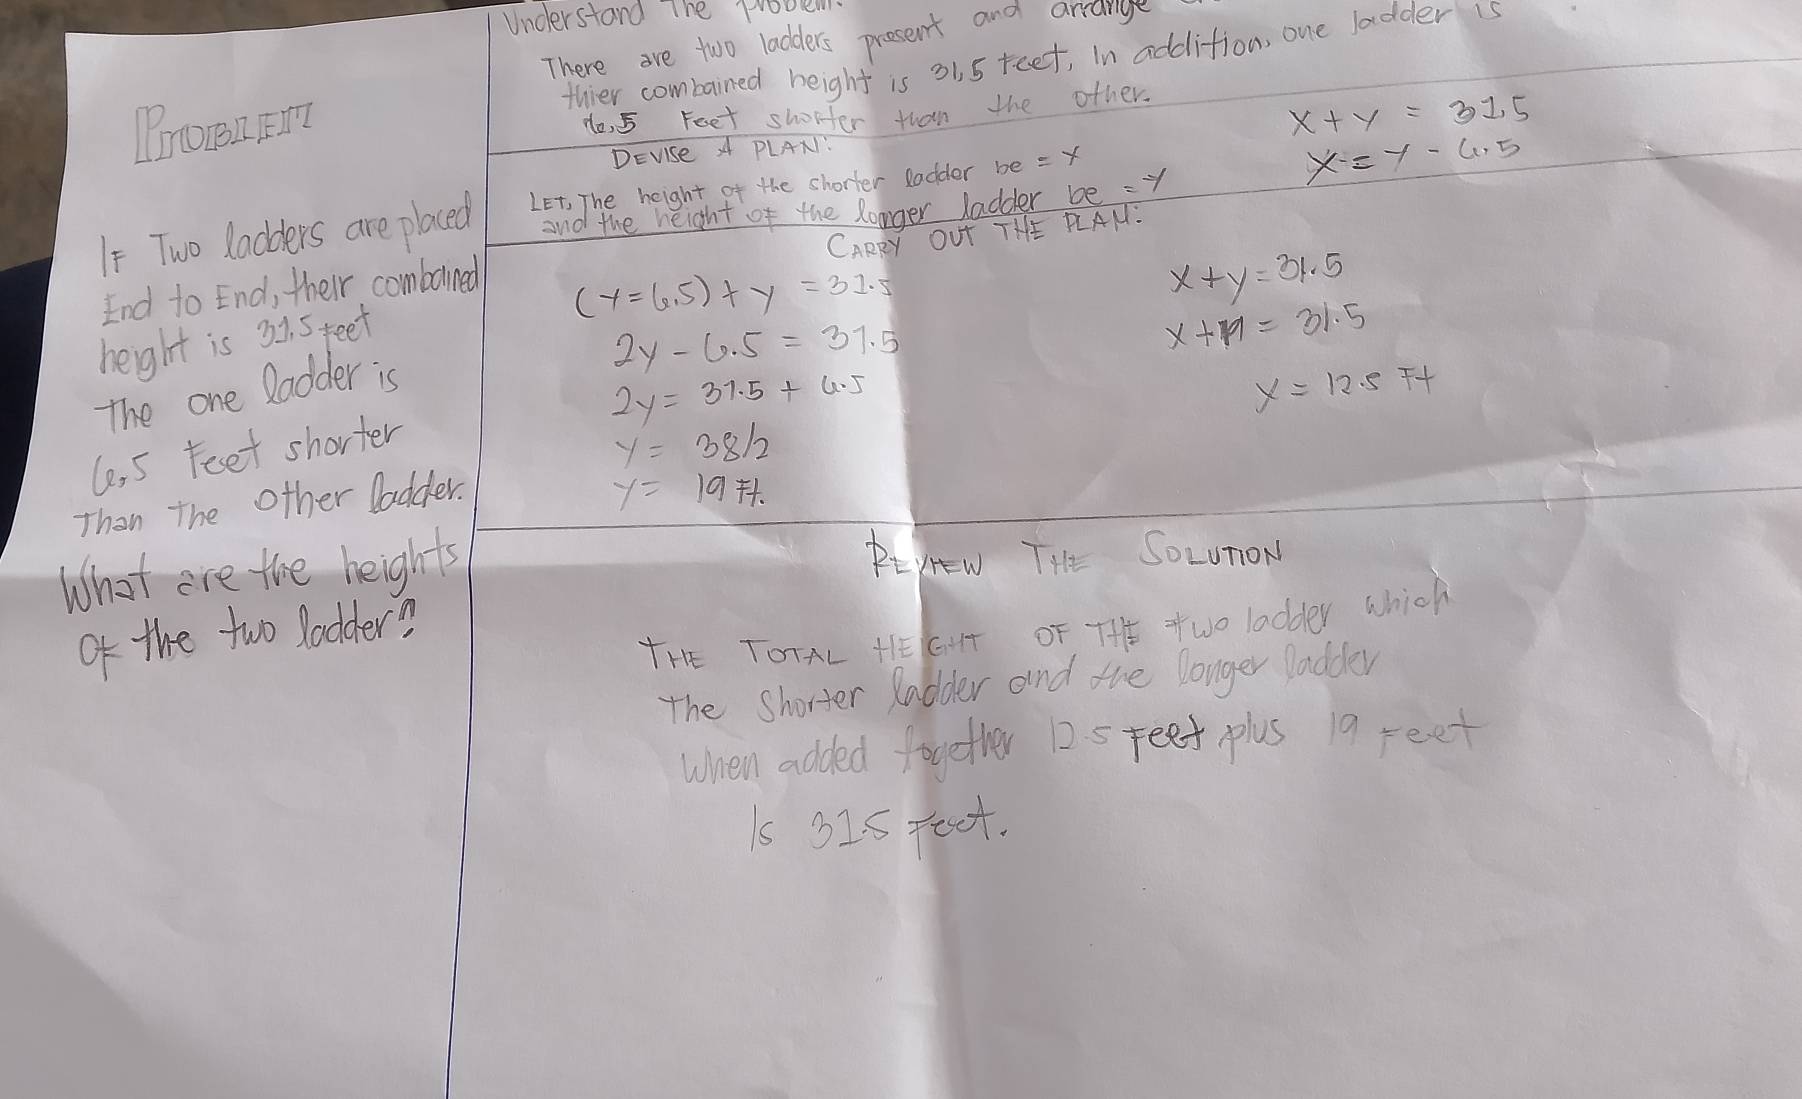 PROBLEM
IF Two ladders are placed
End to End, their combained
height is 31.5 feet
The one ladder is
6.5 Feet shorter
Than The other ladder.
What are the heights
Of the two ladder?
Understand The Problem.
There are two ladders present and arrange
thier combained height is 31,5 feet, In addition, one ladder is
6,5 Feet shorter than the other.
DEVISE A PLAN:
LET, The height of the shorter ladder be = x
and the height of the longer ladder be = y
x + y = 31.5
x = y - 6.5
CARRY OUT THE PLAN:
(y = 6.5) + y = 31.5
2y - 6.5 = 31.5
2y = 31.5 + 6.5
y = 38/2
y = 19 Ft.
x + y = 31.5
x + 19 = 31.5
x = 12.5 Ft
REVIEW THE SOLUTION
THE TOTAL HEIGHT OF THE two ladder which
The Shorter ladder and the longer ladder
When added together 12.5 Feet plus 19 Feet
Is 31.5 Feet.